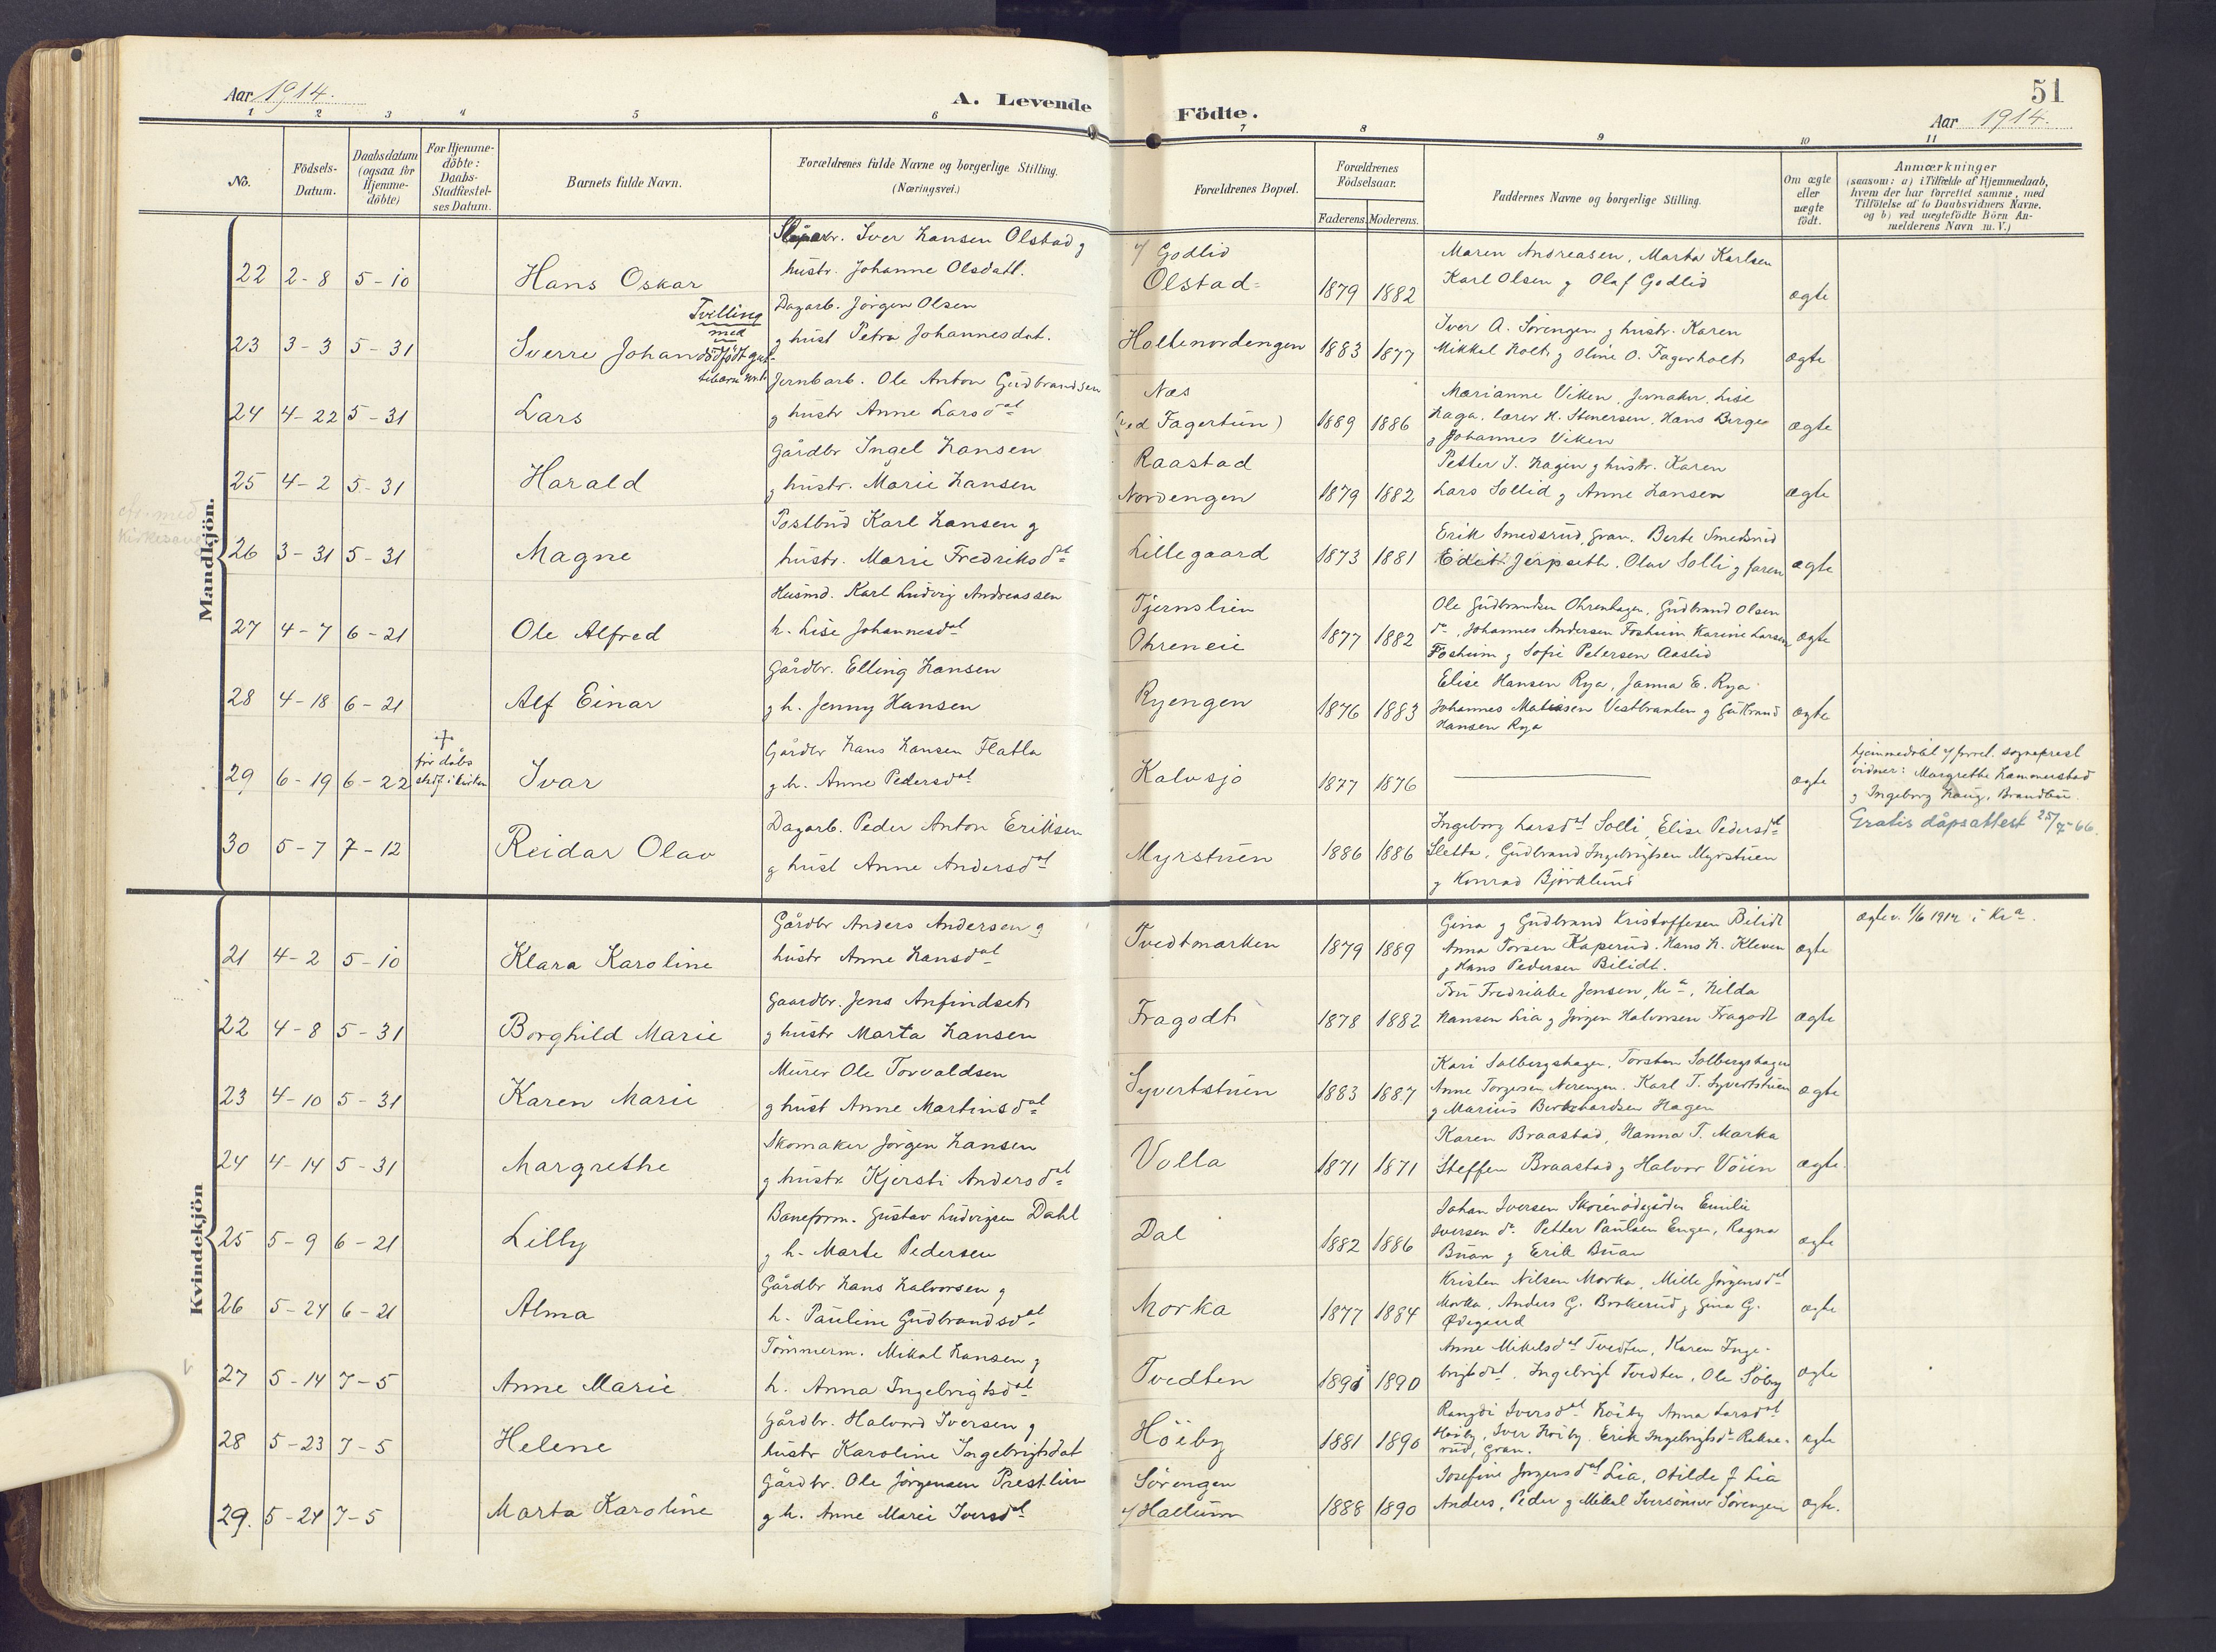 Aar 1914.
A. Levende
Födte.
51
Aar 1914.
1 2 3 4 5 6 7 8 9 10 11
No.
Födsels-
Datum.
Daabsdatum
(ogsaa for
Hjemme-
döbte)
For Hjemme-
döbte:
Daabs-
Stadfæstel-
ses Datum.
Barnets fulde Navn.
Forældrenes fulde Navne og borgerlige Stilling.
(Næringsvei.)
Forældrenes Bopæl.
Forældrenes
Födselsaar.
Faderens. Moderens.
Faddernes Navne og borgerlige Stilling.
Om ægte
eller
uægte
født.
Anmærkninger
(saasom: a) i Tilfælde af Hjemmedaab,
hvem der har forrettet samme, med
Tilföielse af to Daabsvidners Navne,
og b) ved uægtefödte Börn An-
melderens Navn m. V.)
Mandkjön.
22 2-8 5-10 Hans Oskar
Iver Hansen Olstad g
hustr. Johanne Olsdatt.
Godlid
Olstad
1879 1882
Maren Andreasen, Marta Karlsen
Karl Olsen g Olaf Godlid
ægte
23 3-3 5-31 Sverre Johan
Tvilling
med
dödfödt
Dagarb. Jörgen Olsen
g hust Petra Johannesdat.
Holtenordengen
1883 1877
Iver A. Sörengen g hustr. Karen
Mikkel Holt g Oline O. Fagerholt
ægte
24 4-22 5-31 Lars
Jernbarb. Ole Anton Gudbrandsen
g hustr Anne Larsdat
Næs
(ved Fagertun)
1889 1886
Marianne Viken, Jevnaker, Lise
Haga, lærer H. Stenersen, Hans Berger
g Johannes Viken
ægte
25 4-2 5-31 Harald
Gårdbr Ingel Hansen
g hustr. Marie Hansen
Raastad
Nordengen
1879 1882
Petter J. Hagen g hustr. Karen
Lars Sollid g Anne Hansen
ægte
26 3-31 5-31 Magne
Postbud Karl Hansen g
hustr. Marie Fredriksdat
Lillegaard
1873 1881
Erik Smedsrud, Gran. Berte Smedsrud
Edit Jerpseth. Olav Solli g faren
ægte
27 4-7 6-21 Ole Alfred
Husmd. Karl Ludvig Andreassen
h. Lise Johannesdat
Tjernslien
Ohreneie
1877 1882
Ole Gudbrandsen Ohrenhagen, Gudbrand Olsen
do, Johannes Andersen Fosheim Karine Larsen
Fosheim g Sofie Petersen Aaslid
ægte
28 4-18 6-21 Alf Einar
Gårdbr. Elling Hansen
g h. Jenny Hansen
Ryengen
1876 1883
Elise Hansen Rya, Janna E. Rya
Johannes Matiasen Vestbraaten g Gudbrand
Hansen Rya
ægte
29 6-19 6-22 Ivar
†
för dåbs
stadf. i kirken
Gårdbr Hans Hansen Flatla
g h. Anne Pedersdat
Kalvsjö
1877 1876
ægte
Hjemmedöbt af forret. sogneprest
vidner: Margrethe Hammerstad
g Ingeborg Haug, Brandbu.
30 5-7 7-12 Reidar Olav
Dagarb. Peder Anton Eriksen
g hust Anne Andersdat
Myrstuen
1886 1886
Ingeborg Larsdat Solli, Elise Pedersdat
Sletta, Gudbrand Ingebrigtsen Myrstuen
g Konrad Björklund
Gratis dåpsattest 25/7-66.
Kvindekjön
21 4-2 5-10 Klara Karoline
Gårdbr Anders Andersen g
hustr Anne Hansdat
Tvedtmarken
1879 1889
Gina g Gudbrand Kristoffersen Bilidt
Anna Torsen Kaperud. Hans H. Kleven
g Hans Pedersen Bilidt.
ægte
22 4-8 5-31 Borghild Marie
Gaardbr. Jens Anfindset
g hustr Marta Hansen
Fragodt
1878 1882
Fru Fredrikke Jensen, Kra, Hilda
Hansen Lia g Jörgen Halvorsen Fragodt
ægte
23 4-10 5-31 Karen Marie
Murer Ole Torvaldsen
g hust Anne Martinsdat
Syvertstuen
1883 1887
Kari Solbergshagen, Torsten Solbergshagen
Anne Torgersen Nerengen. Karl T. Syvertstuen
g Marius Berkhardsen Hagen
ægte
24 4-14 5-31 Margrethe
Skomaker Jörgen Hansen
g hustr Kjersti Andersdat
Volla
1871 1871
Karen Braastad, Hanna T. Marka
Steffen Braastad g Halvor Vöien
ægte
25 5-9 6-21 Lilly
Baneform. Gustav Ludvigsen Dahl
g h. Marte Pedersen
Dal
1882 1886
Johan Iversen Emilie
Iversen do Petter Paulsen Enger, Ragna
Buan g Erik Buan
ægte
26 5-24 6-21 Alma
Gårdbr Hans Halvorsen g
h. Pauline Gudbrandsdat
Morka
1877 1884
Kristen Nilsen Morka, Mille Jörgensdat
Morka, Anders G. Brokerud g Gina G.
Ødegaard
ægte
27 5-14 7-5 Anne Marie
Tömmerm. Mikal Hansen g
h. Anna Ingebrigtsdat
Tvedten
1890
Anne Mikelsdat Tvedten, Karen Inge-
brigtsdat. Ingebrigt Tvedten, Ole Söby
ægte
28 5-23 7-5 Helene
Gårdbr. Halvord Iversen g
hustr Karoline Ingebrigtsdat
Höiby
1881 1890
Rangdi Iversdat Höiby Anna Larsdat
Höiby, Iver Höiby. Erik
Gran.
ægte
29. 5-24 7-5 Marta Karoline
Gårdbr. Ole Jörgensen Prestlien
g h. Anne Marie Iversdat
Sörengen
Hallum
1888 1890
Josefine Jörgensdat Lia, Otilde J Lia
Anders, Peder g Mikkel Iversönner Sörengen
ægte.